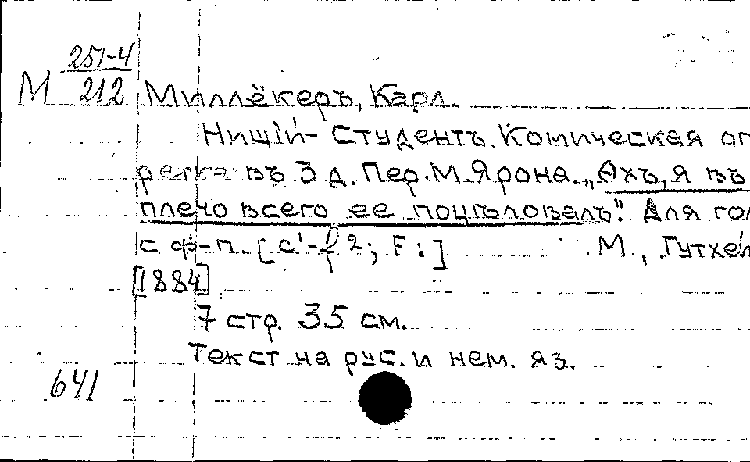 257-4
М 212 Миллёкеръ, Карл.
Нищій-студентъ. Комическая оп
ретка въ 3 д. Пер. М. Ярона. „Ахъ, я въ
плечо всего ее поцѣловалъ". Для гол
с ф-п. [c'-f2; F:] М., Гутхей
[1884]
7 стр. 35 см.
Текст на рус. и нем. яз.
641